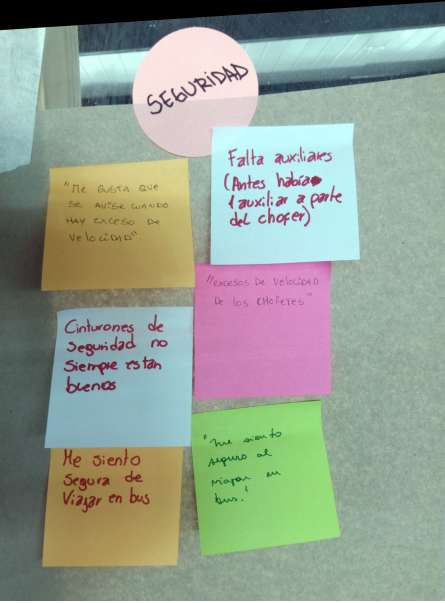 SEGURIDAD
Falta auxiliares
(Antes había
1 auxiliar a parte
del chofer)
"Me GUSTA QUE
SE AVISE CUANDO
HAY EXCESO DE
VELOCIDAD"
"EXCESOS DE VELOCIDAD
DE LOS CHOFERES"
Cinturones de
Seguridad no
Siempre están
buenos
Me siento
Segura de
Viajar en bus
"me siento
seguro al
viajar en
bus."